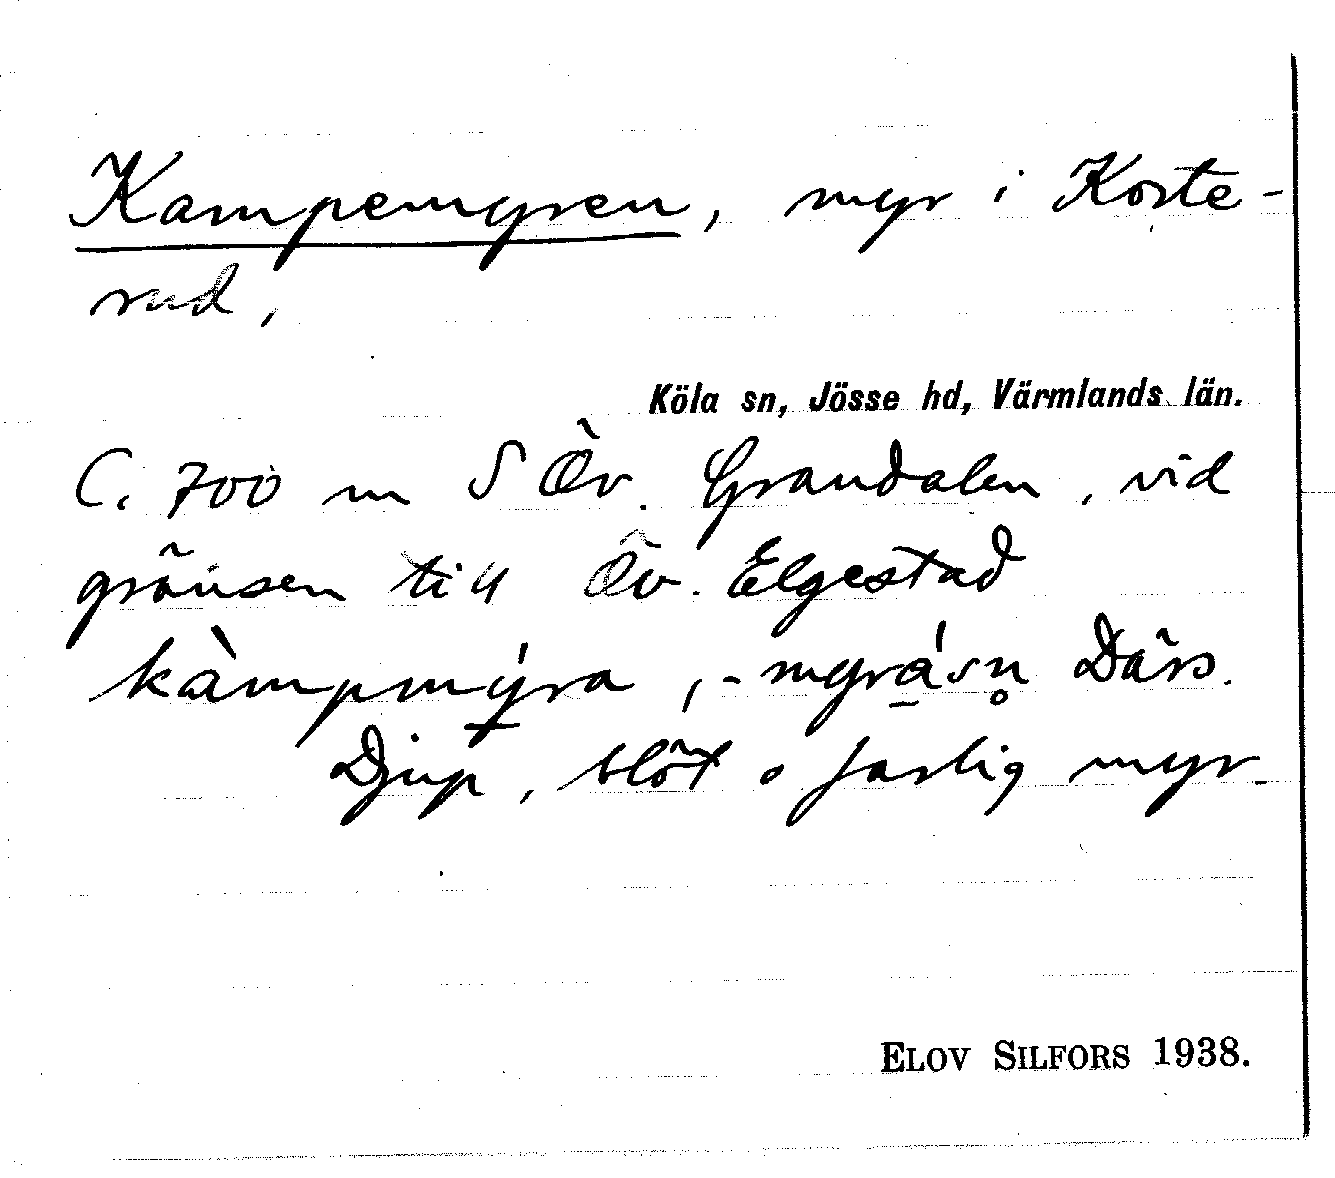 Kampemyren, myr i Korte-
rud,
Köla sn, Jösse hd, Värmlands län.
C. 700 m S Öv. Grandalen, vid
gränsen till Öv. Elgestad
kàmpmýra, -myrásn̥ Därs.
Djup, blöt o farlig myr.
ELOV SILFORS 1938.